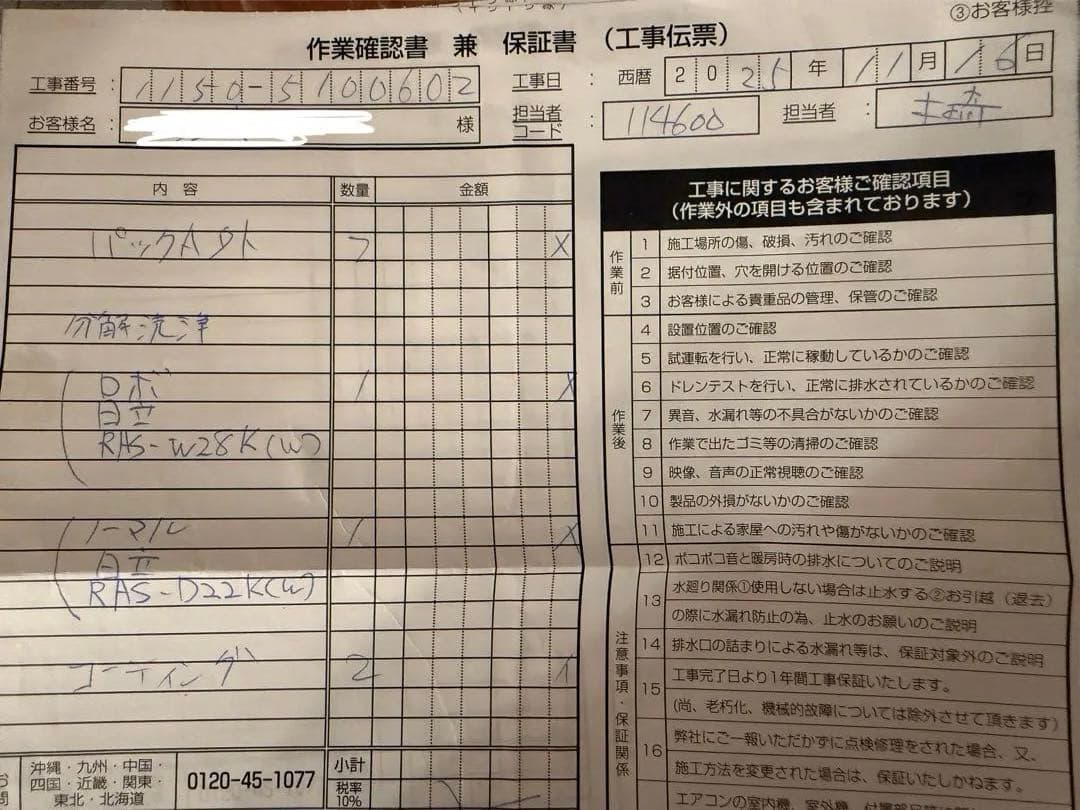 ③お客様控
作業確認書 兼 保証書 (工事伝票)
工事番号 : 1150-5100602
工事日 : 西暦 2025年 11月 16日
お客様名 : 様
担当者コード : 114600 担当者 :
内容 数量 金額
パックAウト 2 X
分解洗浄
ロボ 1 X
日立
RAS-W28K(W)
ノーマル 1 X
日立
RAS-D22K(W)
コーティング 2
沖縄・九州・中国・
四国・近畿・関東・
東北・北海道
0120-45-1077
小計
税率
10%
工事に関するお客様ご確認項目
(作業外の項目も含まれております)
作業前
1 施工場所の傷、破損、汚れのご確認
2 据付位置、穴を開ける位置のご確認
3 お客様による貴重品の管理、保管のご確認
作業後
4 設置位置のご確認
5 試運転を行い、正常に稼動しているかのご確認
6 ドレンテストを行い、正常に排水されているかのご確認
7 異音、水漏れ等の不具合がないかのご確認
8 作業で出たゴミ等の清掃のご確認
9 映像、音声の正常視聴のご確認
10 製品の外損がないかのご確認
11 施工による家屋への汚れや傷がないかのご確認
注意事項・保証関係
12 ポコポコ音と暖房時の排水についてのご説明
13 水廻り関係①使用しない場合は止水する②お引越(退去)
の際に水漏れ防止の為、止水のお願いのご説明
14 排水口の詰まりによる水漏れ等は、保証対象外のご説明
15 工事完了日より1年間工事保証いたします。
(尚、老朽化、機械的故障については除外させて頂きます)
16 弊社にご一報いただかずに点検修理をされた場合、又、
施工方法を変更された場合は、保証いたしかねます。
エアコンの室内機、室外機、